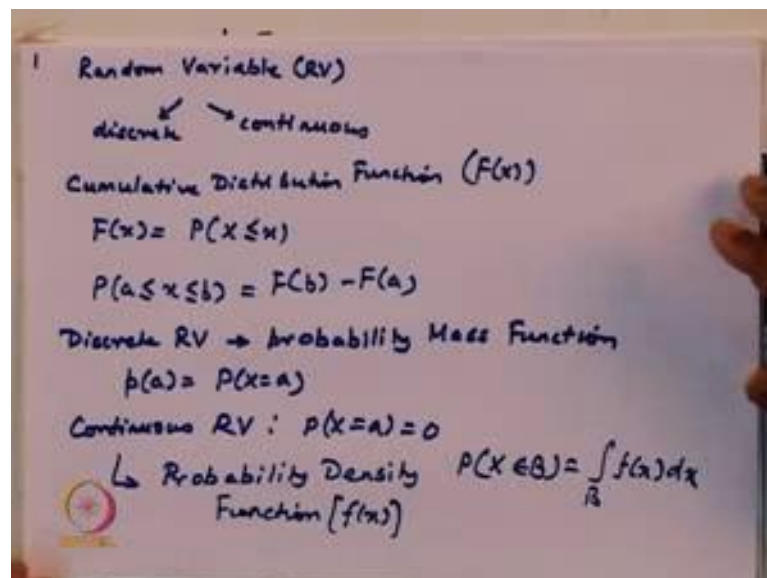 1 Random Variable (RV)
discrete continuous
Cumulative Distribution Function (F(x))
F(x) = P(X ≤ x)
P(a ≤ x ≤ b) = F(b) - F(a)
Discrete RV → probability Mass Function
p(a) = P(X = a)
Continuous RV : P(X = a) = 0
↳ Probability Density P(X ∈ B) = ∫_B f(x) dx
Function [f(x)]